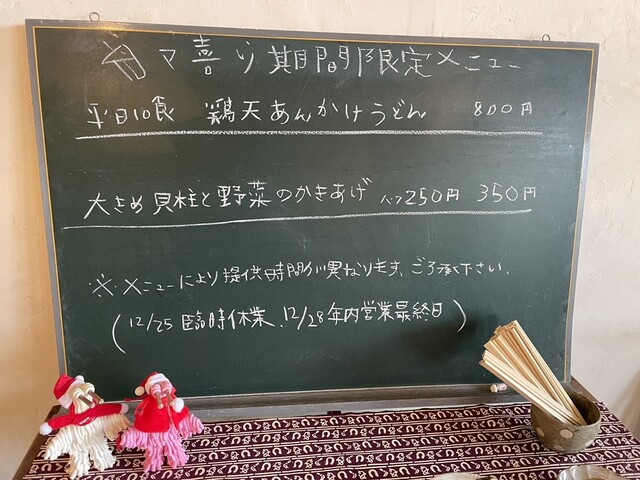 マ喜り期間限定メニュー
平日10食 鶏天あんかけうどん 800円
大きめ貝柱と野菜のかきあげ ハーフ250円 350円
※メニューにより提供時間が異なります。ご了承下さい。
(12/25 臨時休業、12/28年内営業最終日)